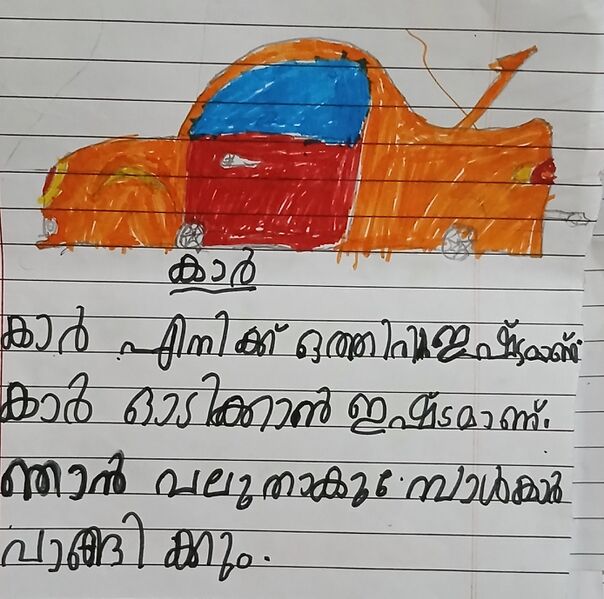 കാർ
കാർ എനിക്ക് ഒത്തിരി ഇഷ്ടമാണ്.
കാർ ഓടിക്കാൻ ഇഷ്ടമാണ്.
ഞാൻ വലുതാകുമ്പോൾ കാർ
വാങ്ങിക്കും.